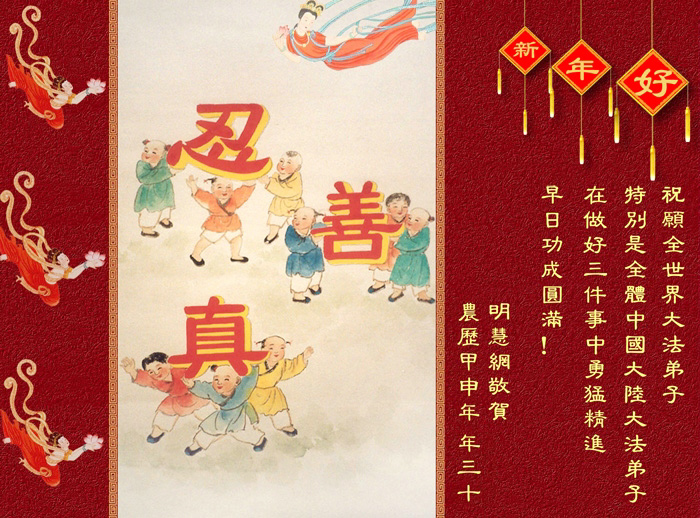 新年好
祝願全世界大法弟子
特別是全體中國大陸大法弟子
在做好三件事中勇猛精進
早日功成圓滿！
明慧網敬賀
農歷甲申年 年三十
真
善
忍